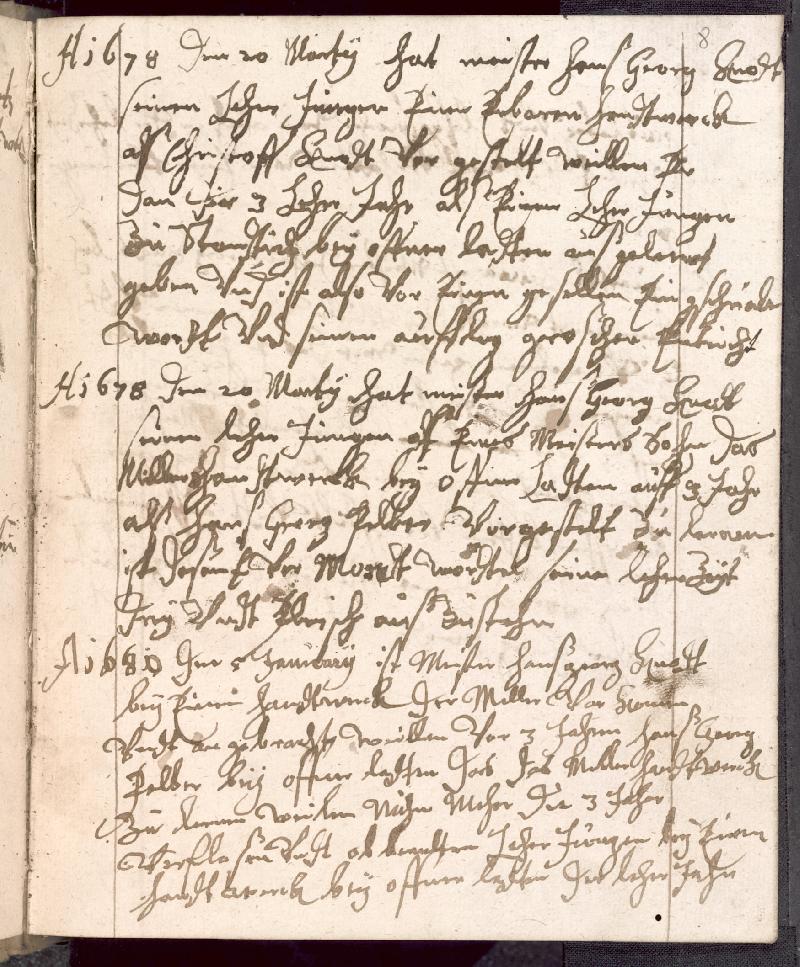 8
A 1678 Den 20 Martÿ hat meister Hans Georg Knodt
seinen Lehr Jungen Einen Erbaren Handtwerck
als Christoff Knodt Vor gestelt weillen Er
Dan die 3 Lehr Jahr als Einen Lehr Jungen
Zu beÿ offner ladten aus gelernt
geben Und ist also Vor Einen gesellen Ein geschrieben
wordt Und seinen
A 1678 Den 20 Martÿ hat meister Hans Georg Knodt
seinen lehr Jungen als Eines Meisters Sohn Das
Miller handtwerck beÿ offner Ladten auff 3 Jahr
als Hans Georg Felber Vorgestelt Zu lernen
ist Vor wordten seine lehr Zeit
Ehrlich aus Zustehn
A 1680 Den 5 January ist Meister Hans georg Knodt
beÿ Einem handtwerck Der Miller Vor
Undt an gebracht weillen Vor 3 Jahren Hans Georg
Felber beÿ offner ladten Das Das Miller handtwerck
Zu lernen Nuhn Mehr Die 3 Jahr
Verflossen Undt Lehr Jungen beÿ Einem
handtwerck beÿ offner ladten Die lehr Jahr